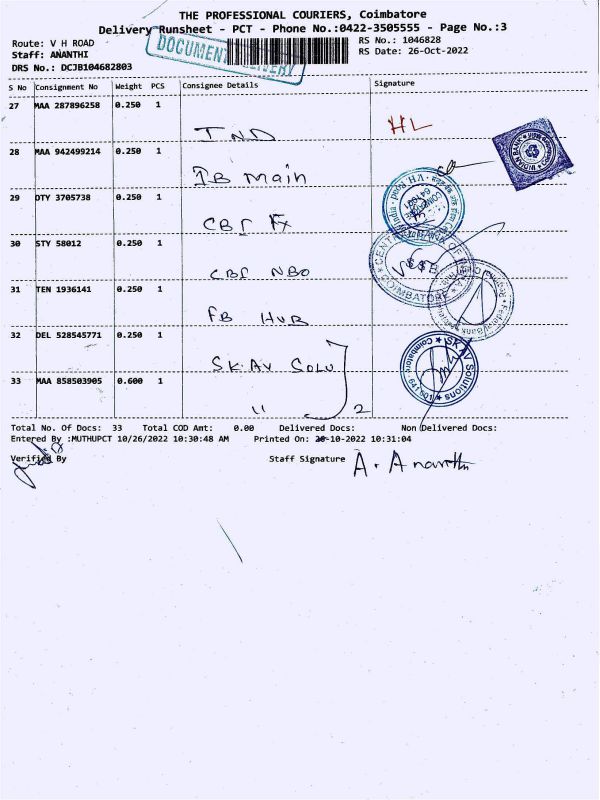 THE PROFESSIONAL COURIERS, Coimbatore
Delivery Runsheet - PCT - Phone No.:0422-3505555 - Page No.:3
Route: V H ROAD
RS No.: 1046828
Staff: ANANTHI
RS Date: 26-Oct-2022
DRS No.: DCJB104682803
DOCUMENT DELIVERY
S No Consignment No Weight PCS Consignee Details Signature
27 MAA 287896258 0.250 1
IND
HL
28 MAA 942499214 0.250 1
IB Main
INDIAN BANK
29 DTY 3705738 0.250 1
CBI Fx
V.H. Road
30 STY 58012 0.250 1
CBI NBO
CENTRAL BANK OF INDIA
COIMBATORE
31 TEN 1936141 0.250 1
FB HUB
Federal Bank
32 DEL 528545771 0.250 1
SK.AV SOLU
SK AV Solutions
Coimbatore - 641 001
33 MAA 858503905 0.600 1
" 2
Total No. Of Docs: 33 Total COD Amt: 0.00 Delivered Docs: Non Delivered Docs:
Entered By :MUTHUPCT 10/26/2022 10:30:48 AM Printed On: 26-10-2022 10:31:04
Verified By
Staff Signature A. Ananthi